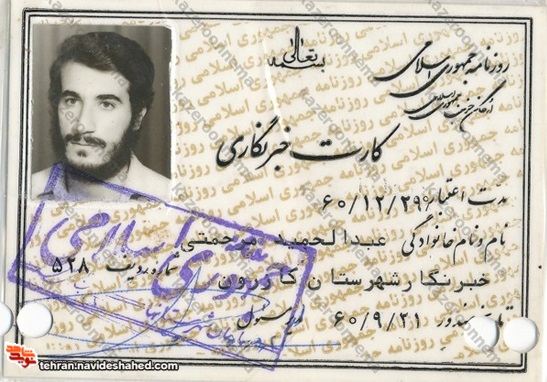 بسمه تعالی
روزنامه جمهوری اسلامی
ارگان حزب جمهوری اسلامی
کارت خبرنگاری
مدت اعتبار ۶۰/۱۲/۲۹
نام و نام خانوادگی عبدالحمید مرحمتی
شماره ردیف ۵۲۸
خبرنگار شهرستان کازرون
تاریخ صدور ۶۰/۹/۲۱
جمهوری اسلامی
kazeroonnema
tehran.navideshahed.com